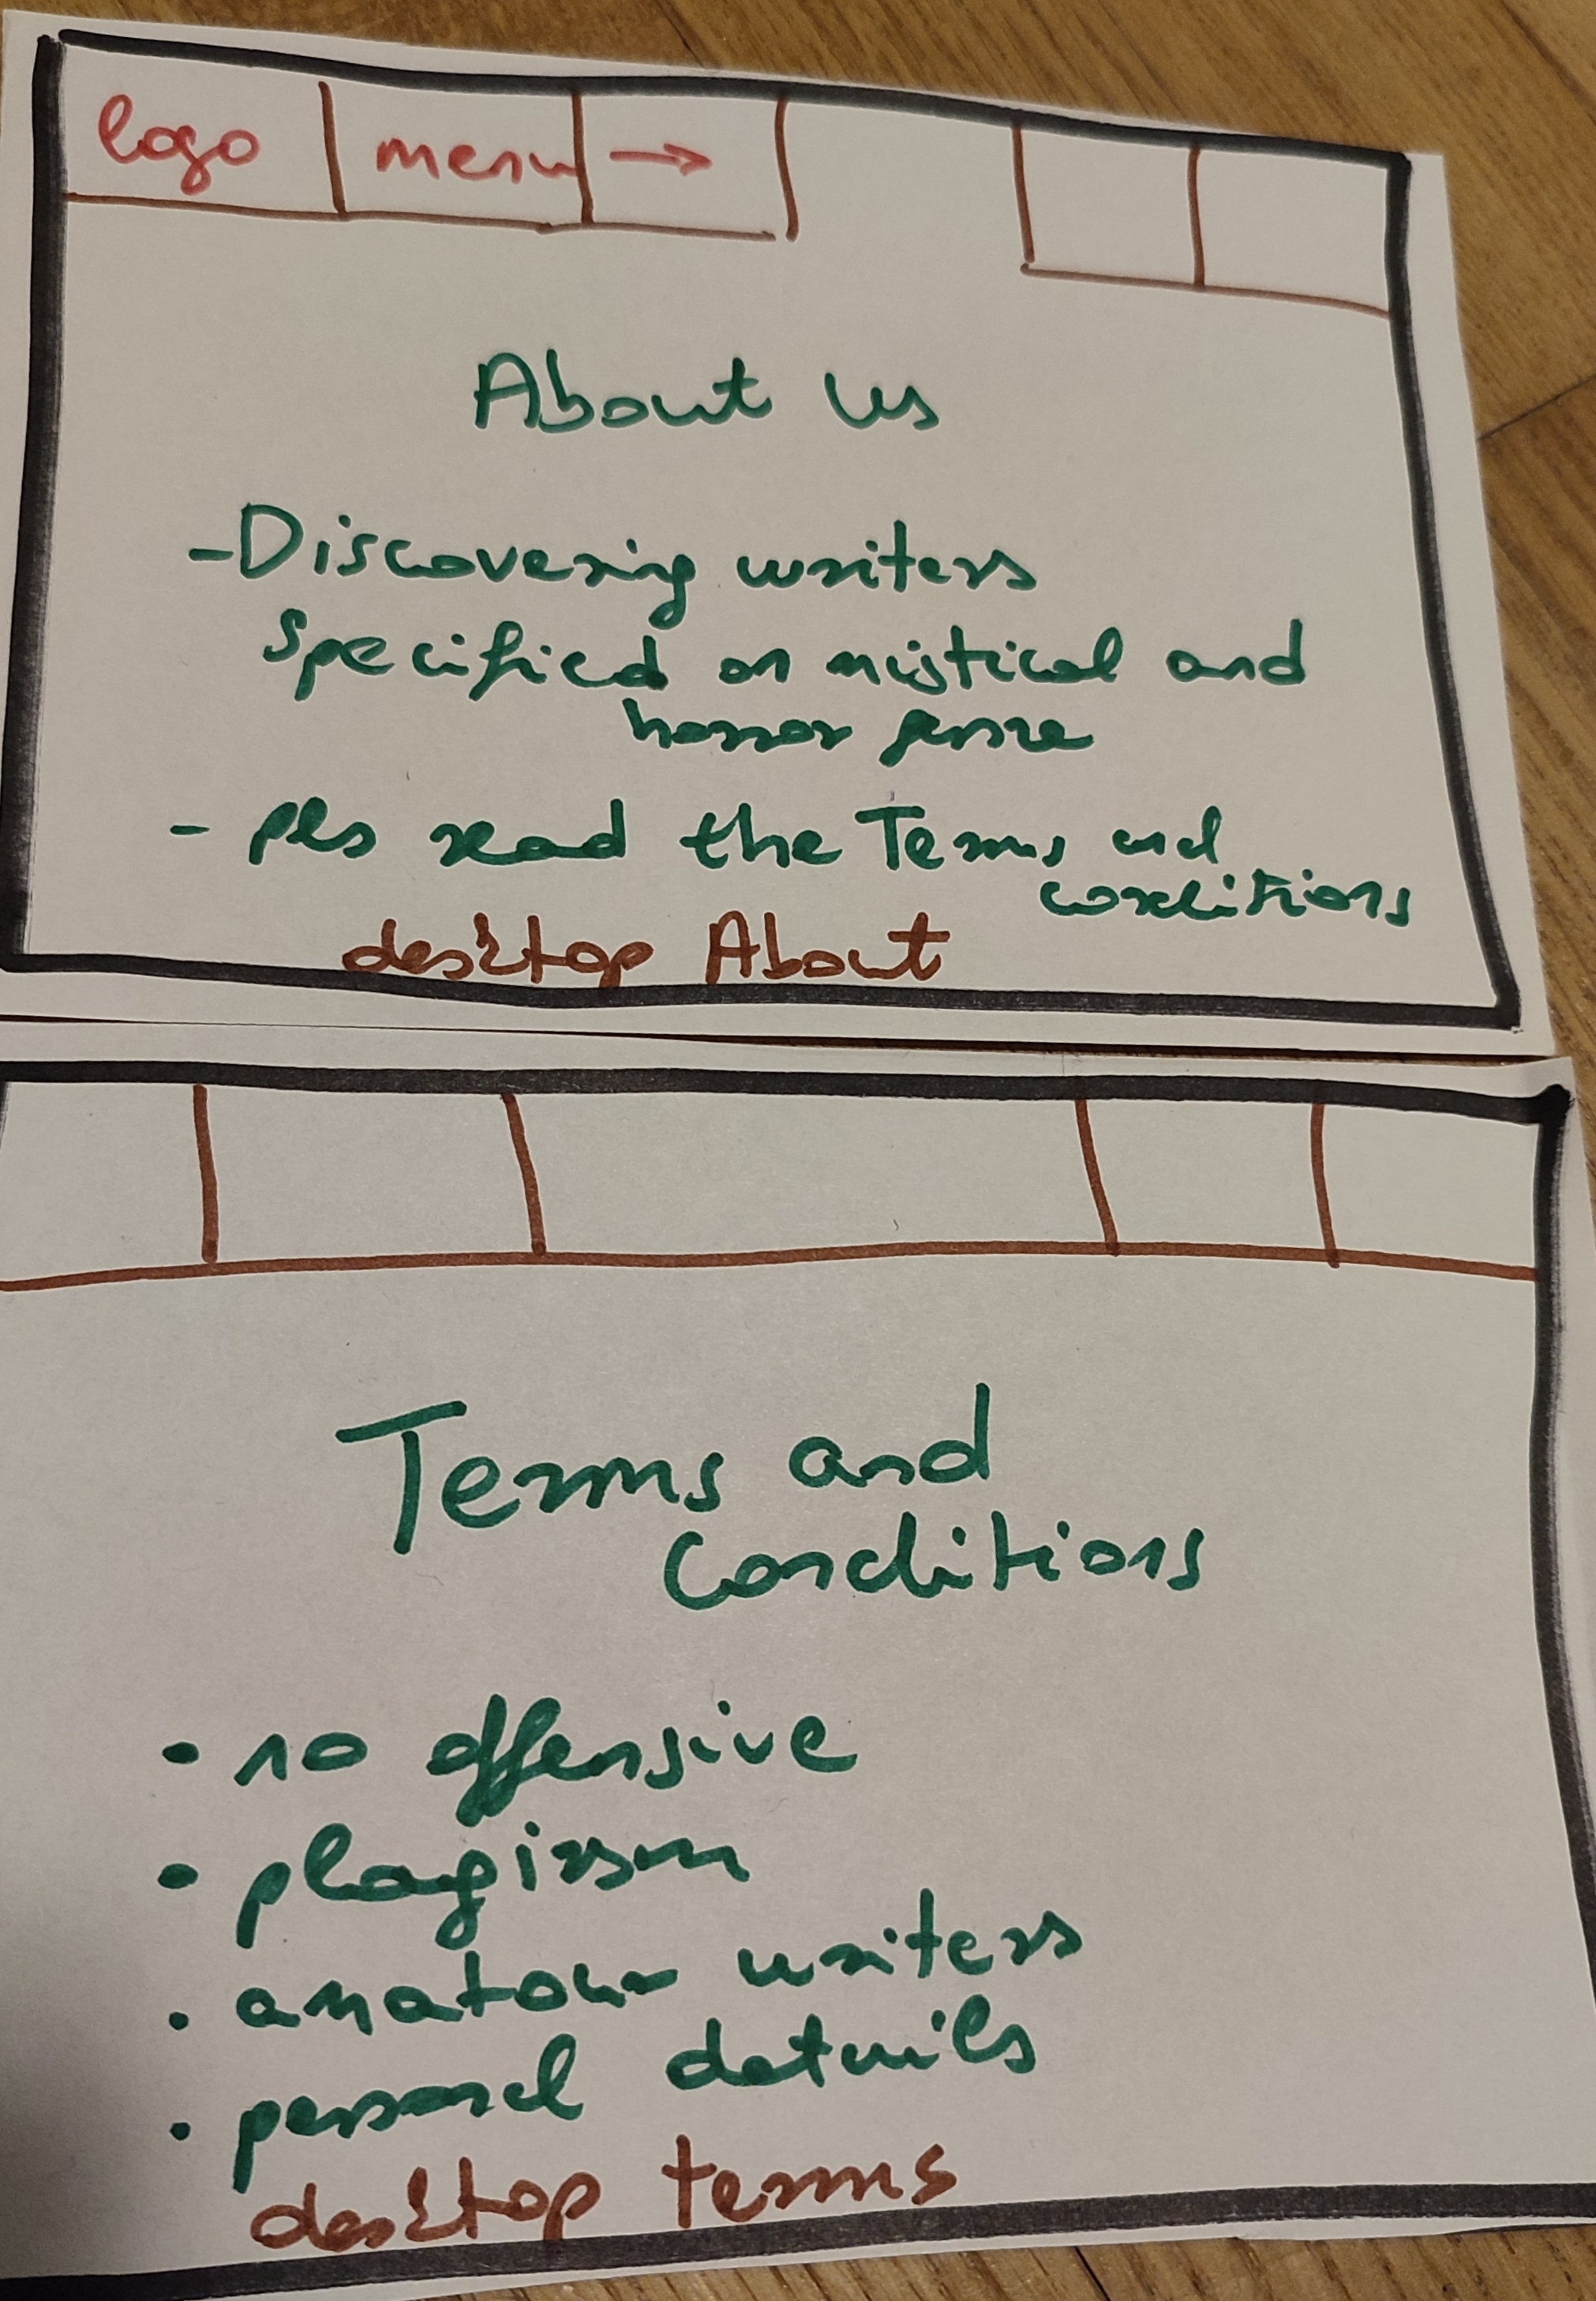 logo menu →
About us
-Discovering writers
specified on mistical and
horror genre
- pls read the Terms and
conditions
desktop About
Terms and
Conditions
• no offensive
• plagirsm
• amatour writers
• personal details
desktop terms